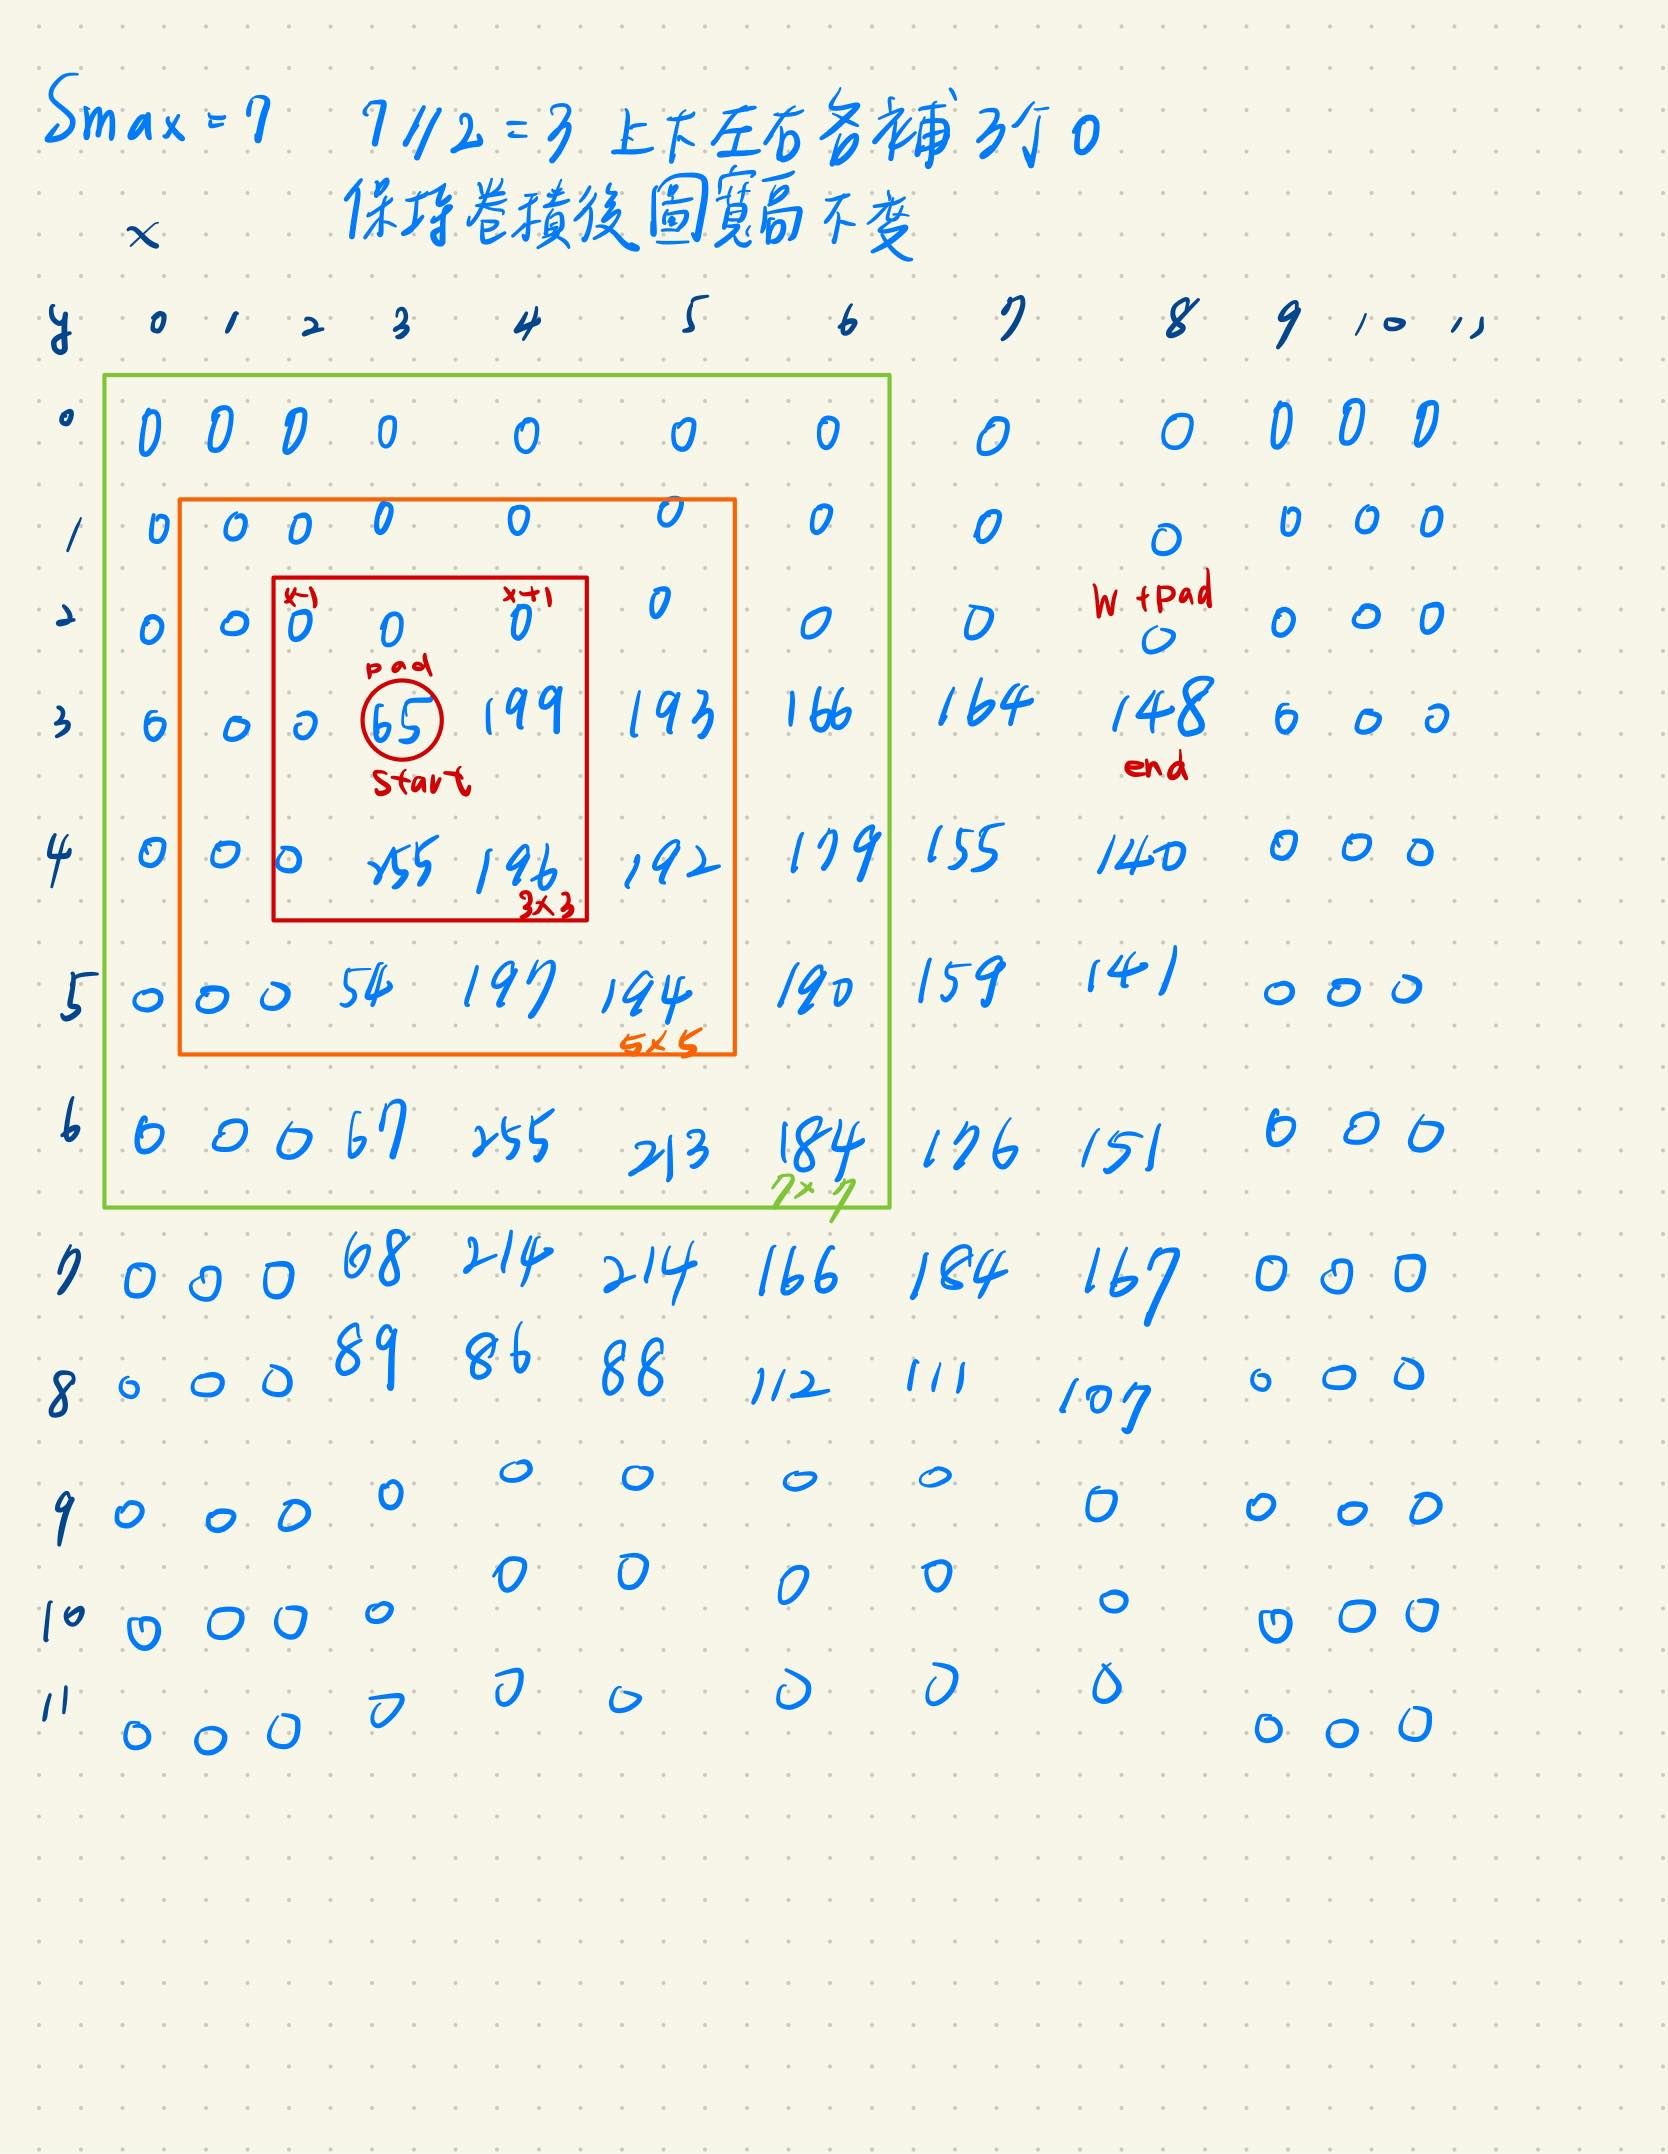 Smax = 7 7//2 = 3 上下左右各補3行0
保持卷積後圖寬高不變
x
y 0 1 2 3 4 5 6 7 8 9 10 11
0 0 0 0 0 0 0 0 0 0 0 0 0
1 0 0 0 0 0 0 0 0 0 0 0 0
x-1 x+1 W+pad
2 0 0 0 0 0 0 0 0 0 0 0 0
pad
3 0 0 0 65 199 193 166 164 148 0 0 0
start end
4 0 0 0 255 196 192 179 155 140 0 0 0
3×3
5 0 0 0 54 197 194 190 159 141 0 0 0
5×5
6 0 0 0 67 255 213 184 176 151 0 0 0
7×7
7 0 0 0 68 214 214 166 184 167 0 0 0
8 0 0 0 89 86 88 112 111 107 0 0 0
9 0 0 0 0 0 0 0 0 0 0 0 0
10 0 0 0 0 0 0 0 0 0 0 0 0
11 0 0 0 0 0 0 0 0 0 0 0 0